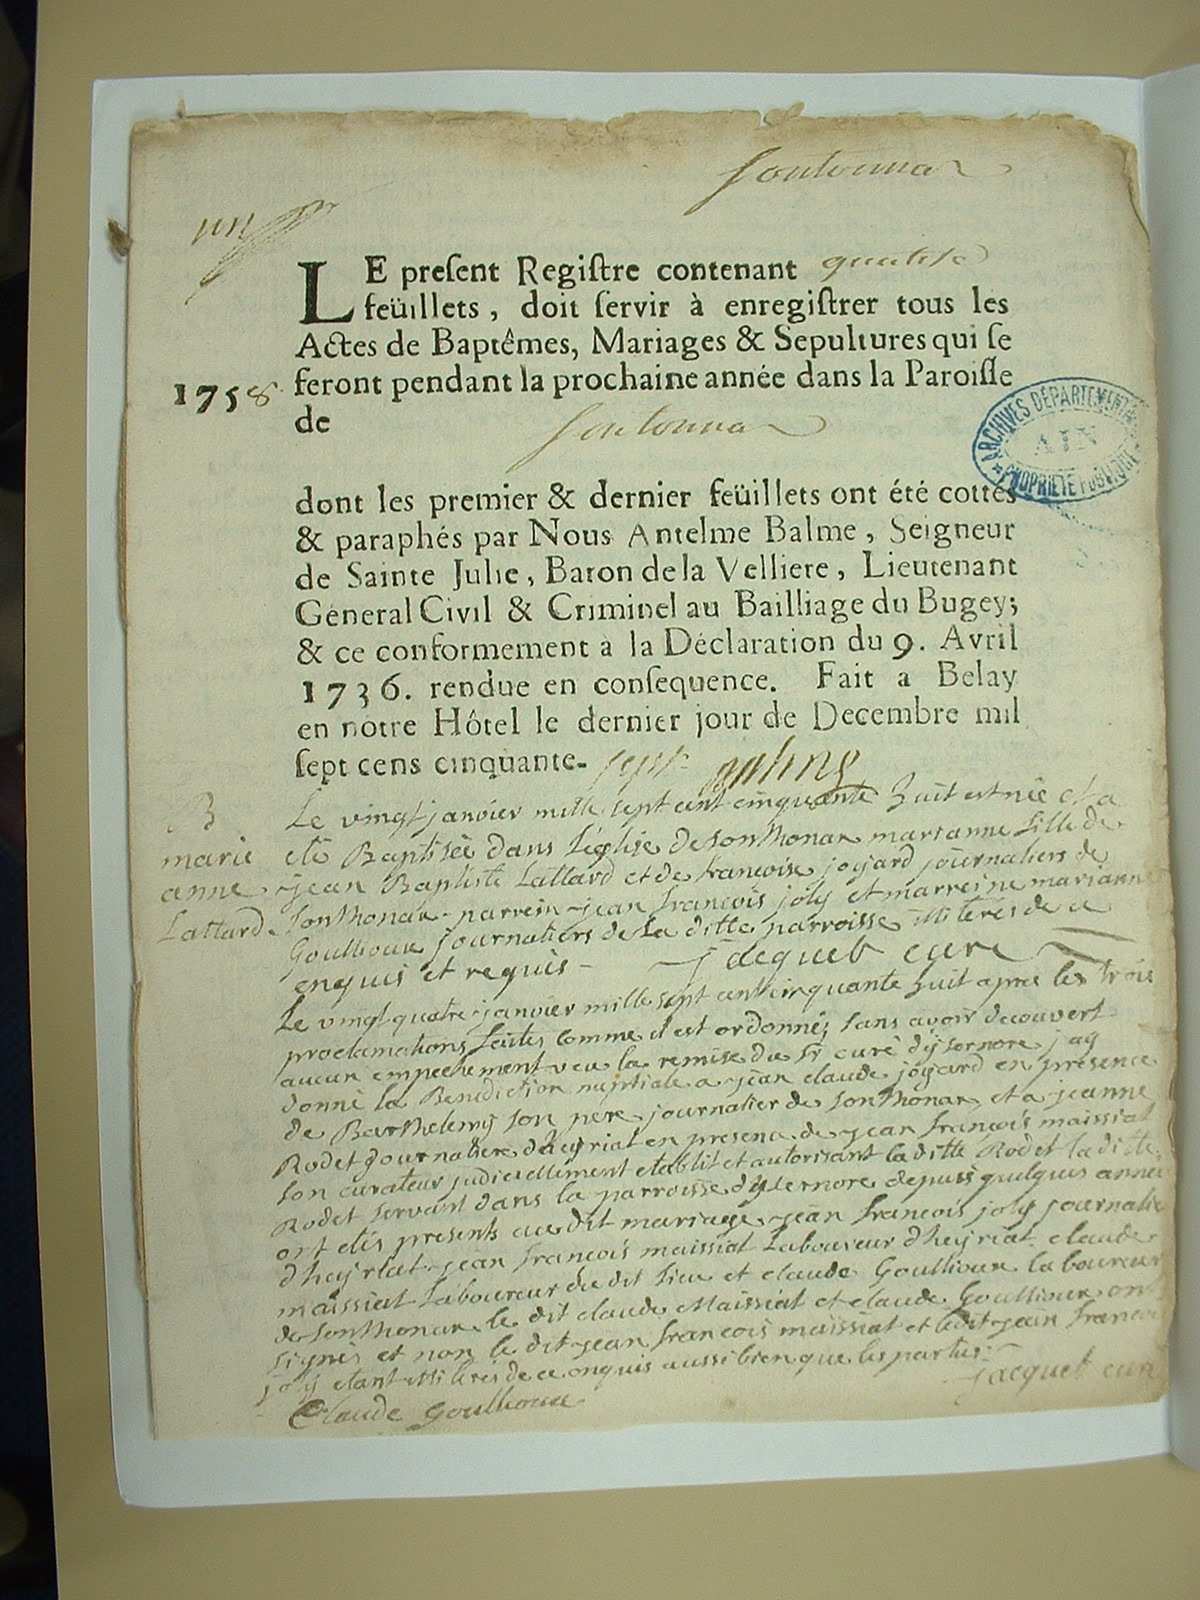 Sontonna
un
LE present Registre contenant quatre
feüillets, doit servir à enregistrer tous les
Actes de Baptêmes, Mariages & Sepultures qui se
1758. feront pendant la prochaine année dans la Paroisse
de Sontonna
ARCHIVES DÉPARTEMENTALES
AIN
PROPRIÉTÉ PUBLIQUE
dont les premier & dernier feüillets ont été cottés
& paraphés par Nous Antelme Balme, Seigneur
de Sainte Julie, Baron de la Velliere, Lieutenant
General Civil & Criminel au Bailliage du Bugey;
& ce conformement à la Déclaration du 9. Avril
1736. rendue en consequence. Fait a Belay
en notre Hôtel le dernier jour de Decembre mil
sept cens cinquante-sept
B
marie
anne
Lallard
Le vingt janvier mille sept cent cinquante huit est née et a
eté Baptisée dans l'église de sonthonax marianne fille de
jean Baptiste Lallard et de francoise joyard journaliers de
sonthonax parrein jean francois joly et marreine marianne
Goullioux journaliers de la ditte parroisse illiterés de ce
enquis et requis - jacquet curé
Le vingt quatre janvier mille sept cent cinquante huit apres les trois
proclamations faites comme il est ordonné; sans avoir decouvert
aucun empechement veu la remise du sr curé d'ysernore j'ay
donné la Benediction nuptiale a jean claude joyard en presence
de Barthelemy son pere journalier de sonthonax, et a jeanne
Rodet journaliere d'heyriat en presence de jean françois maissiat
son curateur judiciellement etablit et autorisant la ditte Rodet la ditte
Rodet servant dans la parroisse d'ysernore depuis quelques année
ont etés presents au dit mariage jean francois joly journalie
d'heyriat jean françois maissiat Laboureur d'heyriat claude
maissiat Laboureur du dit lieu et claude Goullioux laboureur
de sonthonax le dit claude Maissiat et claude Goullioux ont
signés et non le dit jean francois maissiat et ledit jean francoi
joly etant illiterés de ce enquis aussi bien que les parties
jacquet curé
Claude Goullioux